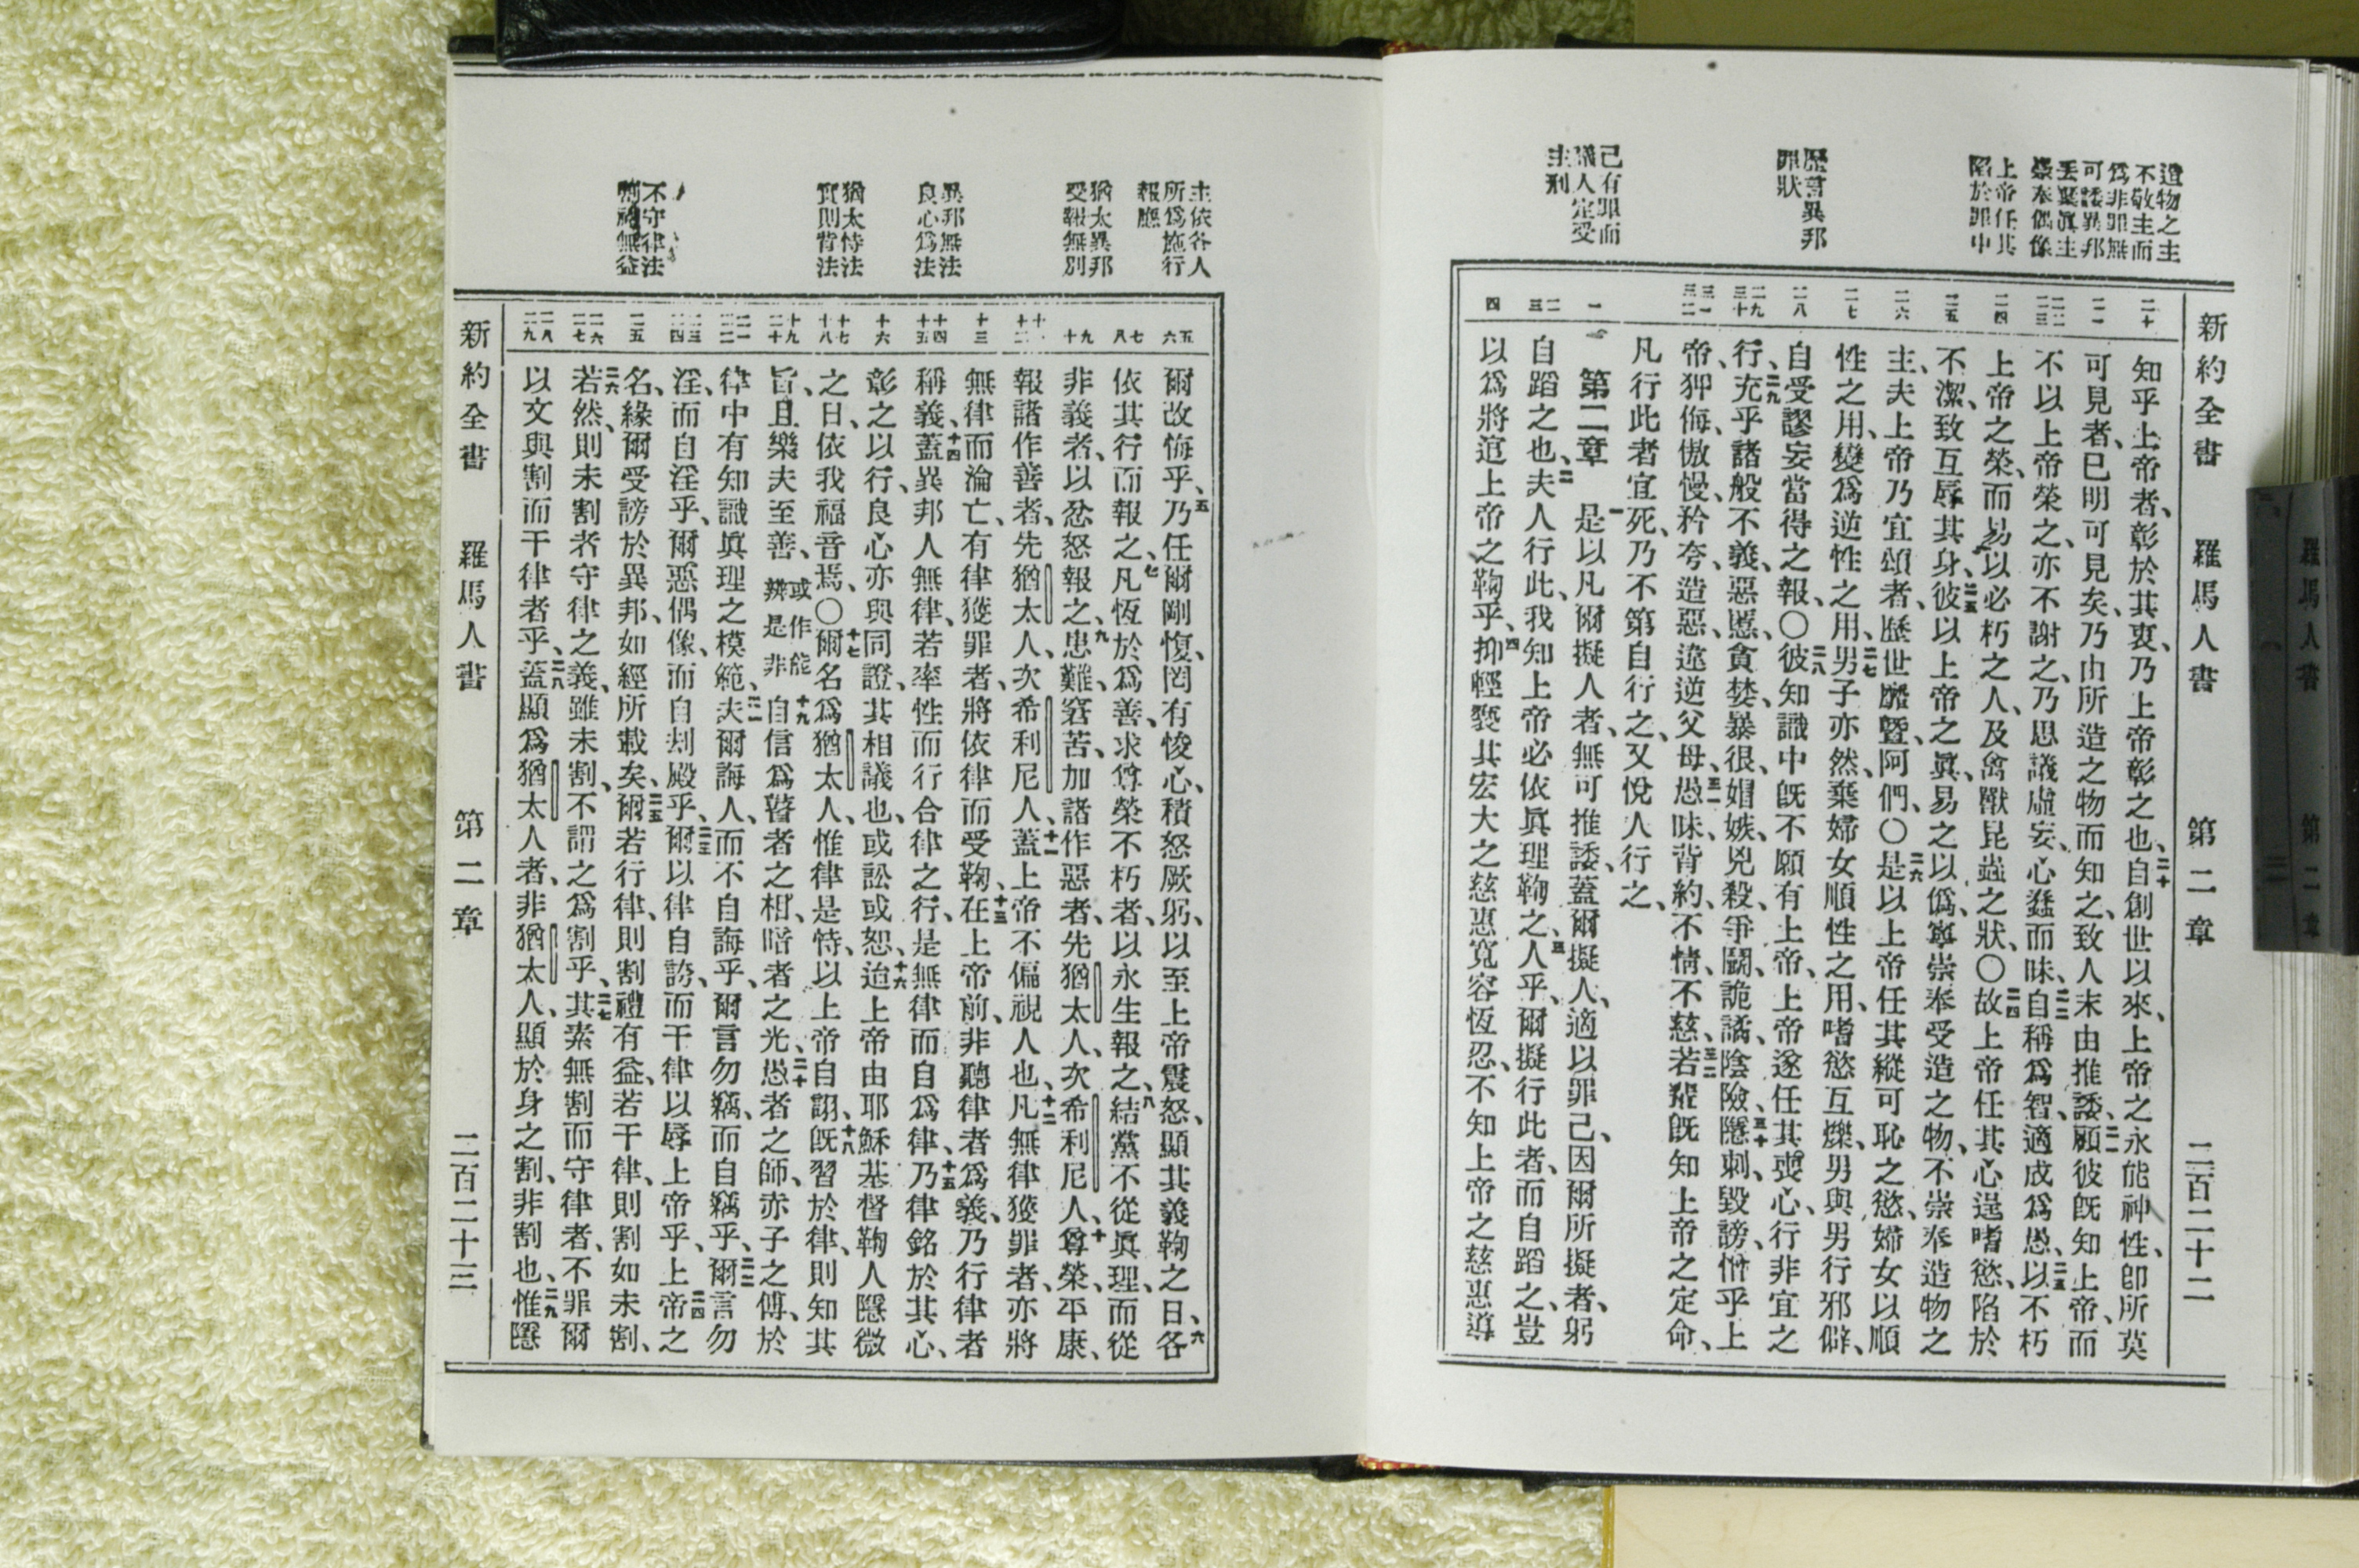 造物之主
不敬主而
爲非罪無
可諉異邦
丟棄眞主
崇奉偶像
上帝任其
陷於罪中
歷言異邦
罪狀
己有罪而
議人定受
主刑
新約全書 羅馬人書 第二章 二百二十二
二十
二一
二二 二三
二四
二五
二六
二七
二八
二九 三十
三一 三二
一
二 三
四
知乎上帝者、彰於其衷、乃上帝彰之也、二十自創世以來、上帝之永能神性、卽所莫
可見者、已明可見矣、乃由所造之物而知之、致人末由推諉、二一顧彼旣知上帝、而
不以上帝榮之、亦不謝之、乃思議虛妄、心蠢而昧、二二自稱爲智、適成爲愚、二三以不朽
上帝之榮、而易以必朽之人、及禽獸昆蟲之狀、〇二四故上帝任其心逞嗜慾、陷於
不潔、致互辱其身、二五彼以上帝之眞、易之以僞、寧崇奉受造之物、不崇奉造物之
主、夫上帝乃宜頌者、歷世靡曁、阿們、〇二六是以上帝任其縱可恥之慾、婦女以順
性之用、變爲逆性之用、二七男子亦然、棄婦女順性之用、嗜慾互爍、男與男行邪僻、
自受謬妄當得之報、〇二八彼知識中旣不願有上帝、上帝遂任其喪心、行非宜之
行、二九充乎諸般不義、惡慝、貪婪、暴很、媢嫉、兇殺、爭鬭、詭譎、陰險、三十隱刺、毀謗、憎乎上
帝、狎侮、傲慢、矜夸、造惡、違逆父母、三一愚昧、背約、不情、不慈、三二若輩旣知上帝之定命、
凡行此者宜死、乃不第自行之、又悅人行之、
第二章 一是以凡爾擬人者、無可推諉、蓋爾擬人、適以罪己、因爾所擬者、躬
自蹈之也、二夫人行此、我知上帝必依眞理鞫之、三人乎、爾擬行此者、而自蹈之、豈
以爲將逭上帝之鞫乎、四抑輕褻其宏大之慈惠寬容恆忍、不知上帝之慈惠導
主依各人
所爲施行
報應
猶太異邦
受報無別
異邦無法
良心爲法
猶太恃法
實則背法
不守律法
割禮無益
五 六
七 八
九 十
十一 十二
十三
十四 十五
十六
十七 十八
十九 二十
二一 二二
二三 二四
二五
二六 二七
二八 二九
爾改悔乎、五乃任爾剛愎、罔有悛心、積怒厥躬、以至上帝震怒、顯其義鞫之日、六各
依其行而報之、七凡恆於爲善、求尊榮不朽者、以永生報之、八結黨不從眞理、而從
非義者、以忿怒報之、九患難、窘苦、加諸作惡者、先猶太人、次希利尼人、十尊榮、平康、
報諸作善者、先猶太人、次希利尼人、十一蓋上帝不偏視人也、十二凡無律獲罪者、亦將
無律而淪亡、有律獲罪者、將依律而受鞫、十三在上帝前、非聽律者爲義、乃行律者
稱義、十四蓋異邦人無律、若率性而行合律之行、是無律而自爲律、十五乃律銘於其心、
彰之以行、良心亦與同證、其相議也、或訟或恕、十六迨上帝由耶穌基督鞫人隱微
之日、依我福音焉、〇十七爾名爲猶太人、惟律是恃、以上帝自詡、十八旣習於律、則知其
旨、且樂夫至善、或作能辨是非 十九自信爲瞽者之相、暗者之光、二十愚者之師、赤子之傅、於
律中有知識眞理之模範、二一夫爾誨人、而不自誨乎、爾言勿竊、而自竊乎、二二爾言勿
淫、而自淫乎、爾惡偶像、而自刦殿乎、二三爾以律自誇、而干律以辱上帝乎、二四上帝之
名、緣爾受謗於異邦、如經所載矣、二五爾若行律、則割禮有益、若干律、則割如未割、
二六若然、則未割者守律之義、雖未割、不謂之爲割乎、二七其素無割而守律者、不罪爾
以文與割而干律者乎、二八蓋顯爲猶太人者、非猶太人、顯於身之割、非割也、二九惟隱
新約全書 羅馬人書 第二章 二百二十三